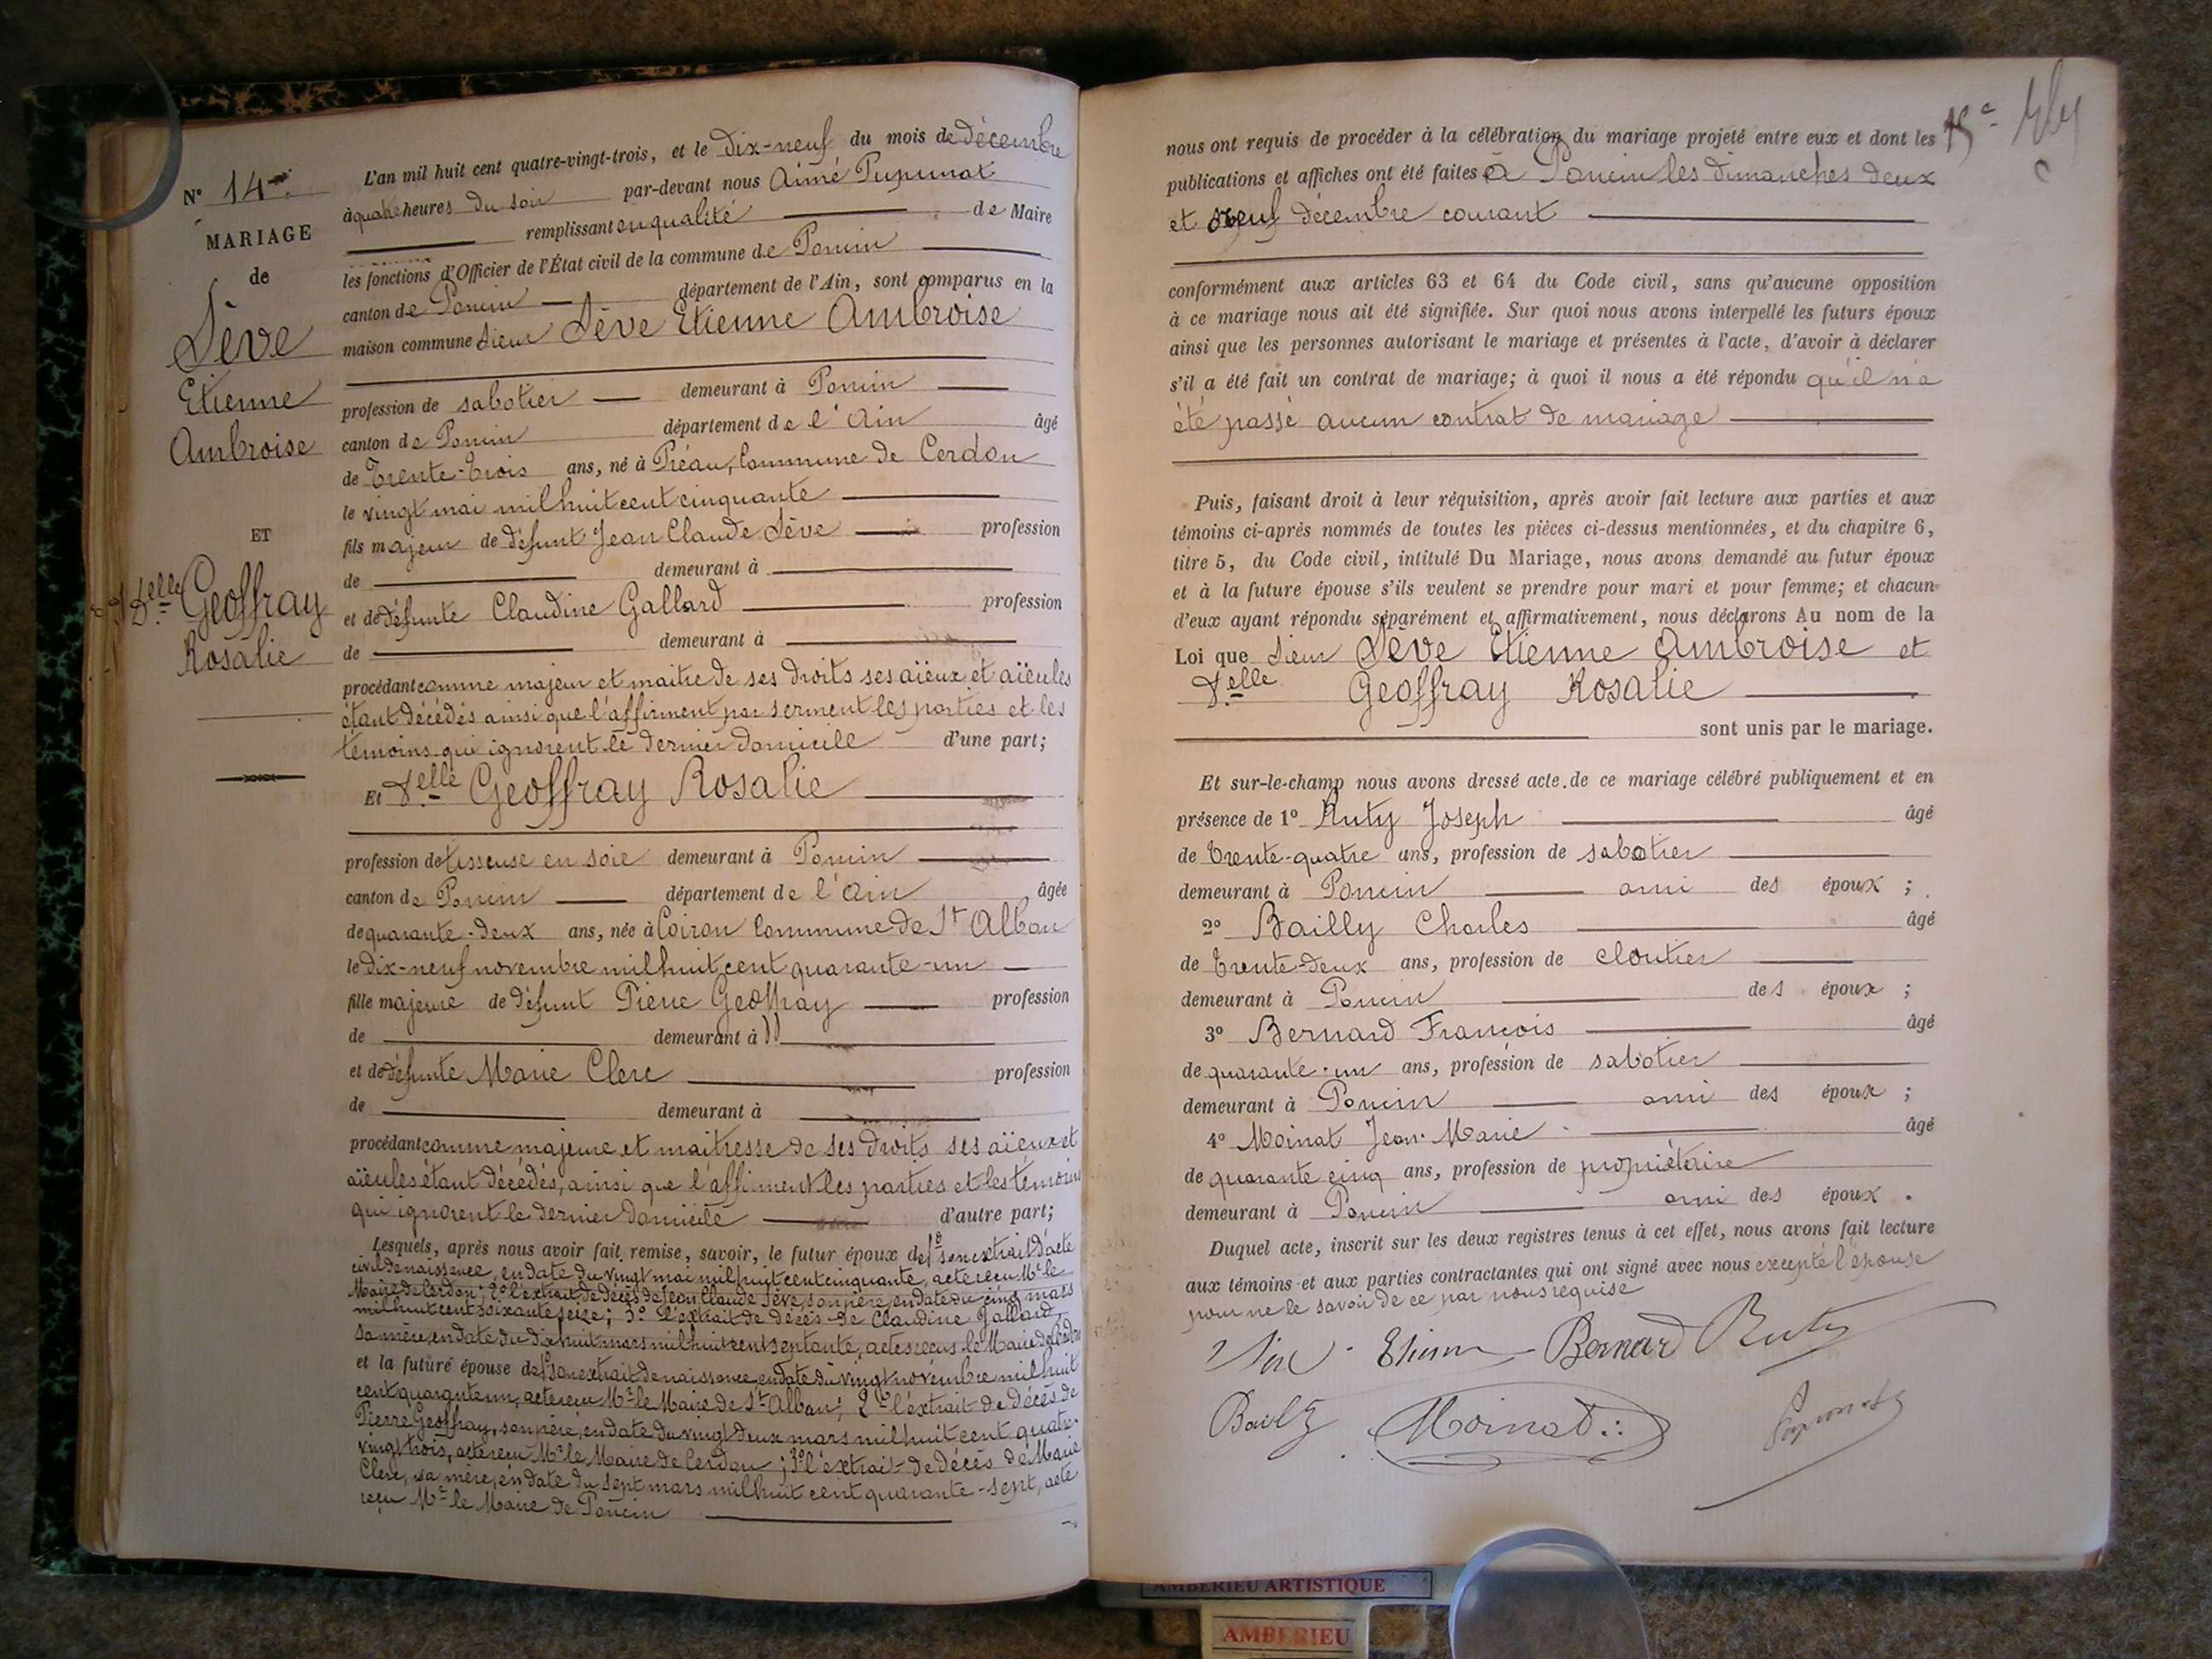 N° 14
MARIAGE
de
Sève
Etienne
Ambroise
ET
Delle Geoffray
Rosalie
L'an mil huit cent quatre-vingt-trois, et le dix-neuf du mois de décembre
à quatre heures du soir par-devant nous Aimé Pupunat
remplissant en qualité de Maire
les fonctions d'Officier de l'État civil de la commune de Poncin
canton de Poncin département de l'Ain, sont comparus en la
maison commune sieur Sève Etienne Ambroise
profession de sabotier demeurant à Poncin
canton de Poncin département de l'Ain âgé
de trente-trois ans, né à Préau, Commune de Cerdon
le vingt mai mil huit cent cinquante
fils majeur de défunt Jean Claude Sève profession
de demeurant à
et de défunte Claudine Gallard profession
de demeurant à
procédant comme majeur et maitre de ses droits ses aïeux et aïeules
étant décédés ainsi que l'affirment par serment les parties et les
témoins qui ignorent le dernier domicile d'une part;
Et Delle Geoffray Rosalie
profession de tisseuse en soie demeurant à Poncin
canton de Poncin département de l'Ain âgée
de quarante-deux ans, née à Coiron Commune de St Alban
le dix-neuf novembre mil huit cent quarante-un
fille majeure de défunt Pierre Geoffray profession
de demeurant à
et de défunte Marie Clerc profession
de demeurant à
procédant comme majeure et maitresse de ses droits ses aïeux et
aïeules étant décédés, ainsi que l'affirment les parties et les témoins
qui ignorent le dernier domicile d'autre part;
Lesquels, après nous avoir fait remise, savoir, le futur époux de 1° son extrait d'acte
civil de naissance, en date du vingt mai mil huit cent cinquante, acte reçu Mr le
Maire de Cerdon; 2° l'extrait de décès de Jean Claude Sève, son père, en date du cinq mars
mil huit cent soixante seize; 3° l'extrait de décès de Claudine Gallard,
sa mère, en date du dix huit mars mil huit cent septante, actes reçus le Maire de Cerdon
et la future épouse de 1° son extrait de naissance, en date du vingt novembre mil huit
cent quarante un, acte reçu Mr le Maire de St Alban; 2° l'extrait de décès de
Pierre Geoffray, son père, en date du vingt deux mars mil huit cent quatre-
vingt trois, acte reçu Mr le Maire de Cerdon; 3° l'extrait de décès de Marie
Clerc, sa mère, en date du sept mars mil huit cent quarante-sept, acte
reçu Mr le Maire de Poncin
nous ont requis de procéder à la célébration du mariage projeté entre eux et dont les
publications et affiches ont été faites à Poncin les dimanches deux
et neuf décembre courant
conformément aux articles 63 et 64 du Code civil, sans qu'aucune opposition
à ce mariage nous ait été signifiée. Sur quoi nous avons interpellé les futurs époux
ainsi que les personnes autorisant le mariage et présentes à l'acte, d'avoir à déclarer
s'il a été fait un contrat de mariage; à quoi il nous a été répondu qu'il n'a
été passé aucun contrat de mariage
Puis, faisant droit à leur réquisition, après avoir fait lecture aux parties et aux
témoins ci-après nommés de toutes les pièces ci-dessus mentionnées, et du chapitre 6,
titre 5, du Code civil, intitulé Du Mariage, nous avons demandé au futur époux
et à la future épouse s'ils veulent se prendre pour mari et pour femme; et chacun
d'eux ayant répondu séparément et affirmativement, nous déclarons Au nom de la
Loi que sieur Sève Etienne Ambroise et
Delle Geoffray Rosalie
sont unis par le mariage.
Et sur-le-champ nous avons dressé acte de ce mariage célébré publiquement et en
présence de 1° Ruty Joseph âgé
de trente-quatre ans, profession de sabotier
demeurant à Poncin ami des époux ;
2° Bailly Charles âgé
de trente-deux ans, profession de cloutier
demeurant à Poncin des époux ;
3° Bernard François âgé
de quarante-un ans, profession de sabotier
demeurant à Poncin ami des époux ;
4° Moinat Jean-Marie âgé
de quarante cinq ans, profession de propriétaire
demeurant à Poncin ami des époux .
Duquel acte, inscrit sur les deux registres tenus à cet effet, nous avons fait lecture
aux témoins et aux parties contractantes qui ont signé avec nous excepté l'épouse
pour ne le savoir de ce par nous requise
Etienne Bernard Ruty
Bailly Moinat
AMBERIEU ARTISTIQUE
AMBERIEU